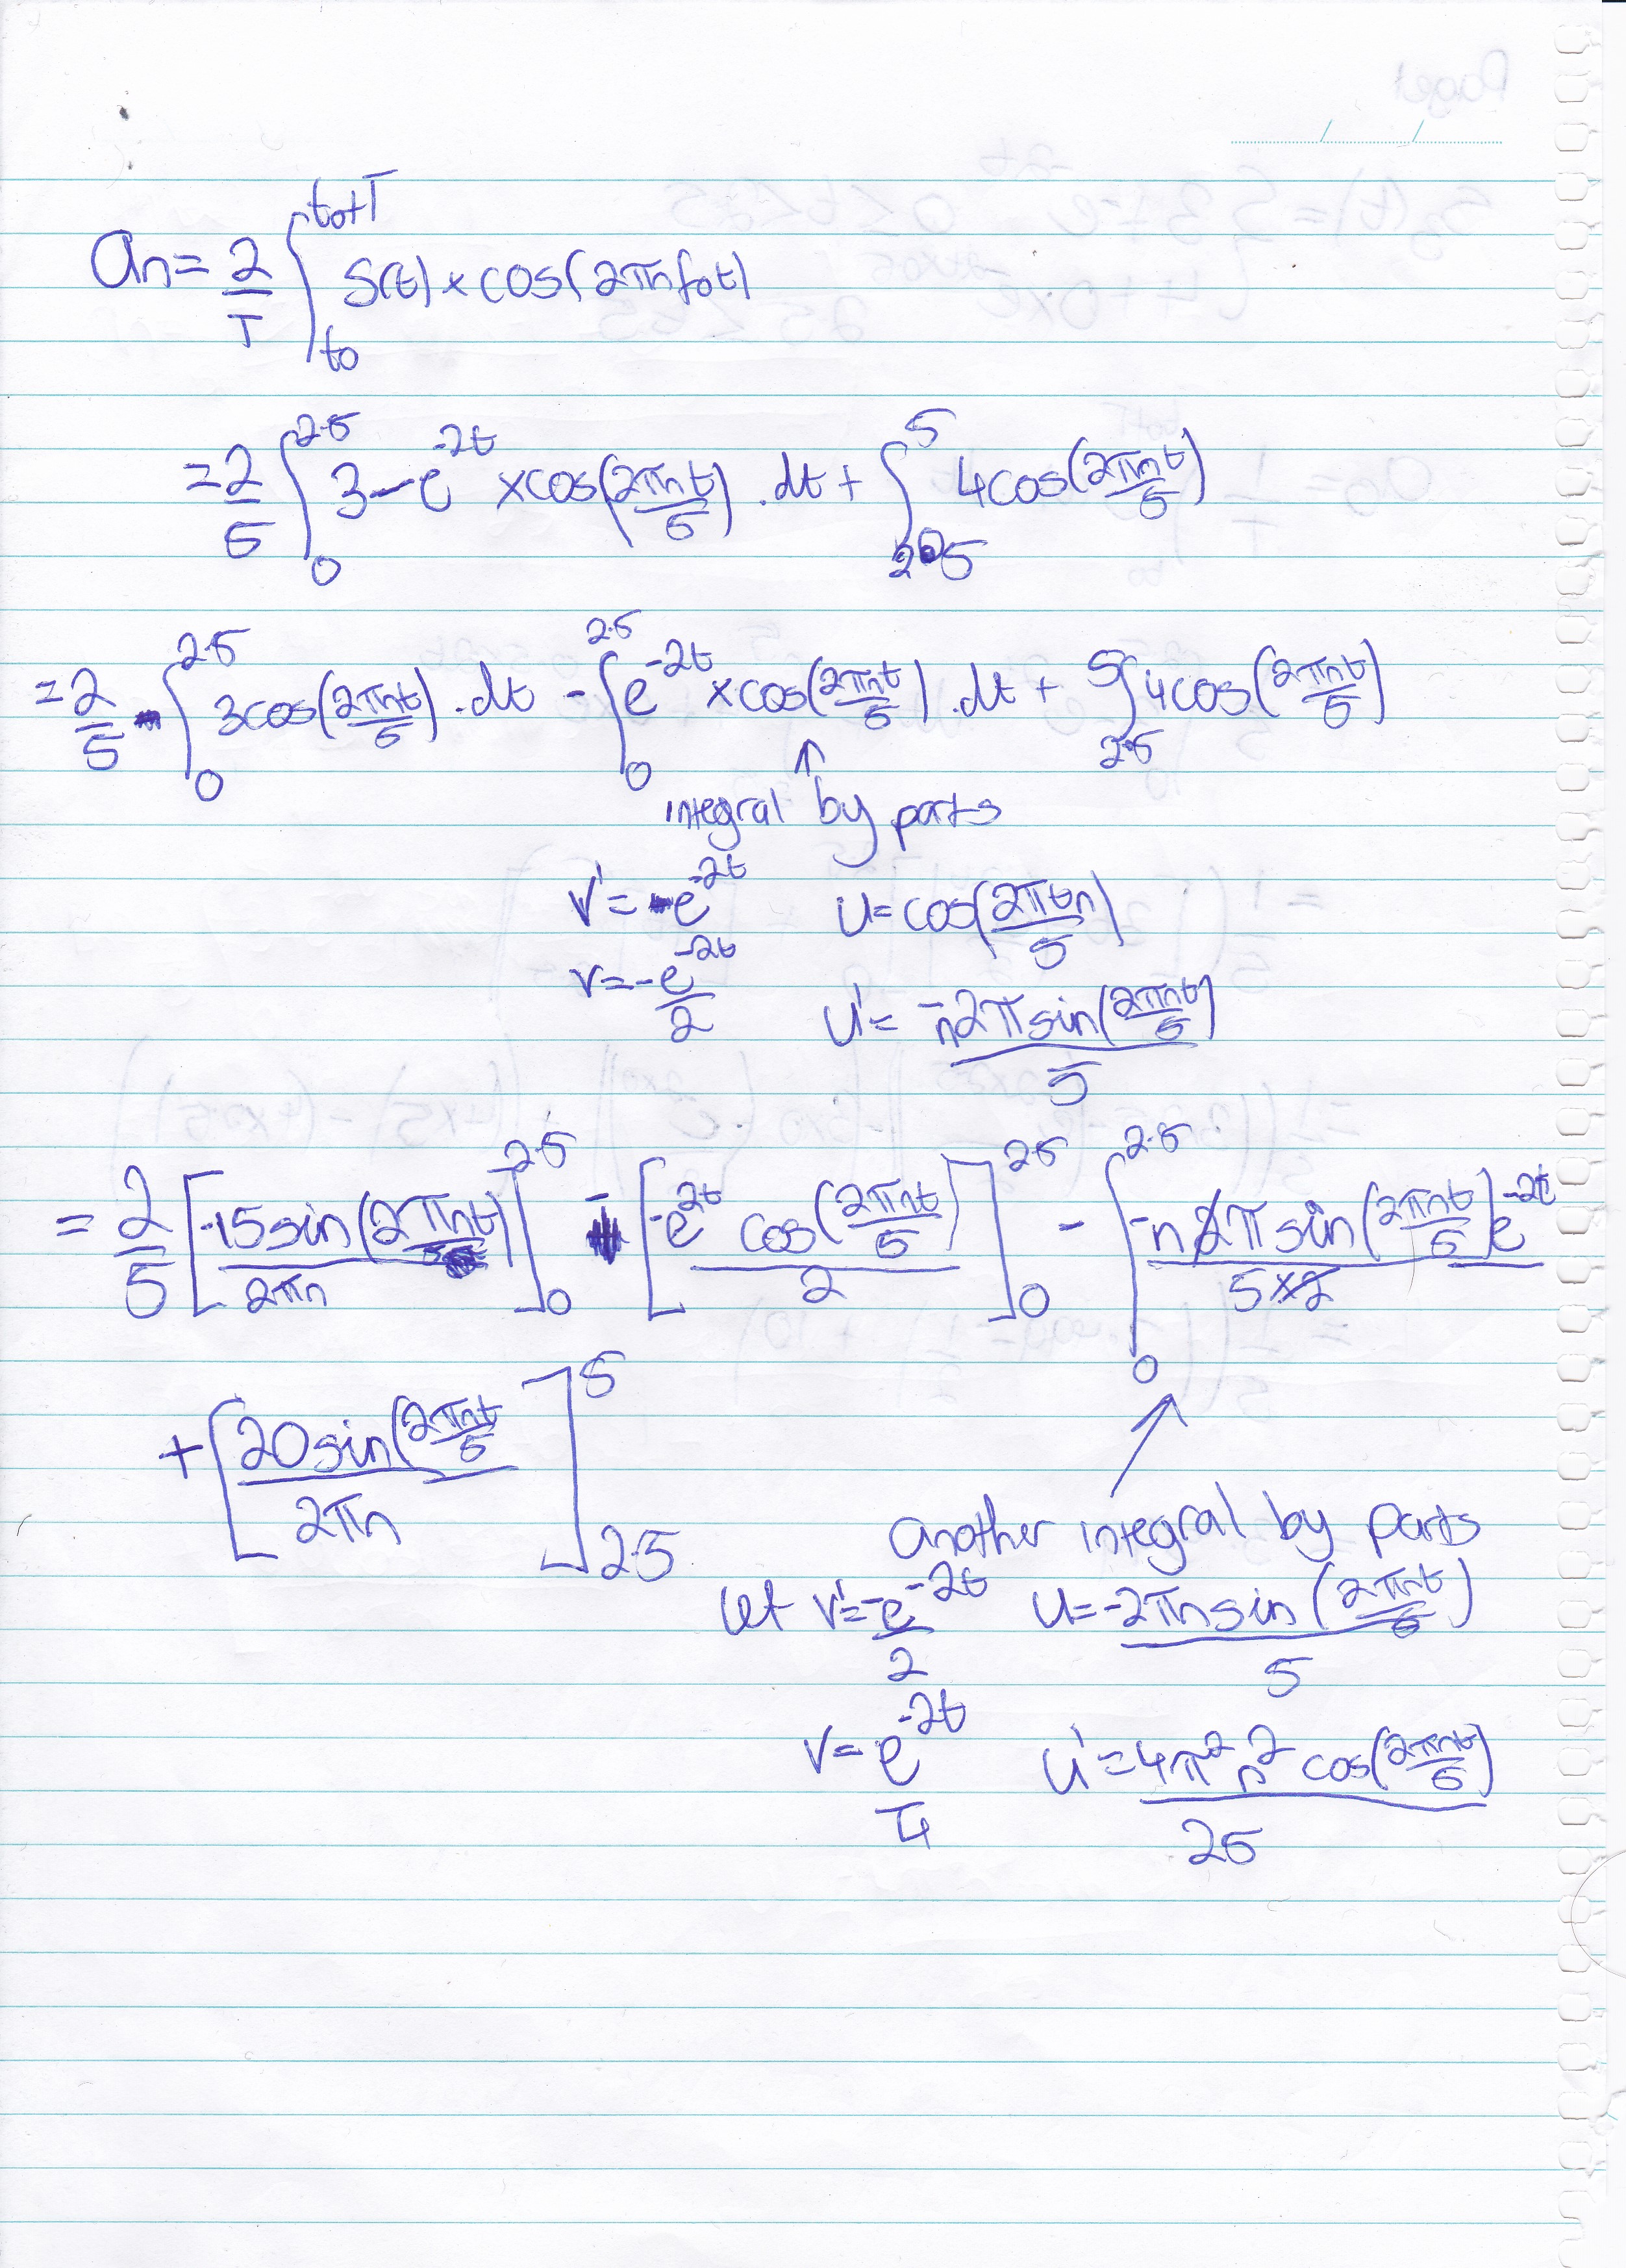 an = 2/T ∫_{to}^{to+T} S(t) × cos(2πnfot)
= 2/5 ∫_0^{2.5} 3 - e^{-2t} × cos(2πnt/5) . dt + ∫_{2.5}^5 4cos(2πnt/5)
= 2/5 ∫_0^{2.5} 3cos(2πnt/5) . dt - ∫_0^{2.5} e^{-2t} × cos(2πnt/5) . dt + ∫_{2.5}^5 4cos(2πnt/5)
↑
integral by parts
v' = e^{-2t} u = cos(2πtn/5)
v = -e^{-2t}/2 u' = -n2π sin(2πnt/5)/5
= 2/5 [15 sin(2πnt/5)/2πn]_0^{2.5} - [-e^{-2t} cos(2πnt/5)/2]_0^{2.5} - ∫_0^{2.5} -n2π sin(2πnt/5)e^{-2t}/5×2
+ [20 sin(2πnt/5/2πn]_{2.5}^5
another integral by parts
let v' = -e^{-2t}/2 u = -2πn sin(2πnt/5)/5
v = e^{-2t}/4 u' = 4π²n² cos(2πnt/5)/25